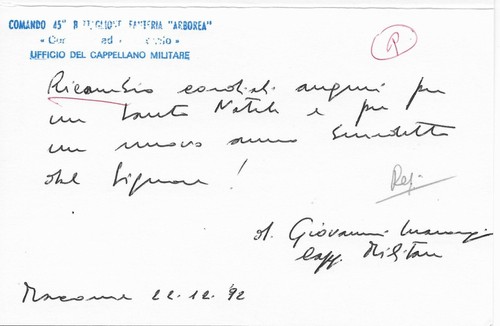 COMANDO 45° BATTAGLIONE FANTERIA "ARBOREA"
UFFICIO DEL CAPPELLANO MILITARE
R
Ricambio cordiali auguri per
un Santo Natale e per
un nuovo anno benedetto
dal Signore!
Rej.
d. Giovanni
Capp. Militare
Macomer 22.12.92